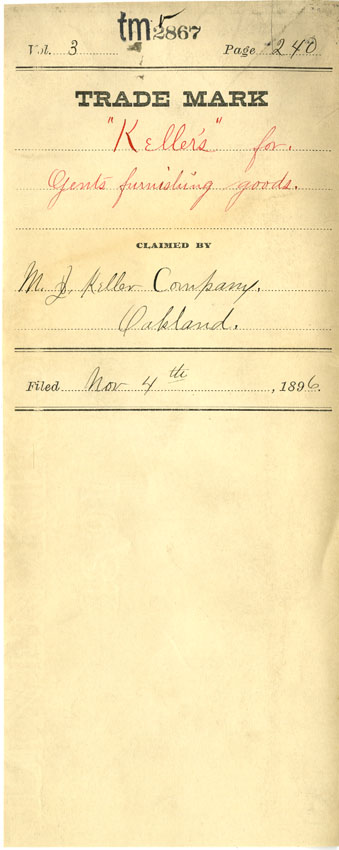 tm 2867
Vol. 3 Page 240
TRADE MARK
"Keller's" for.
Gents furnishing goods.
CLAIMED BY
M. J. Keller Company.
Oakland.
Filed Nov 4th, 1896.